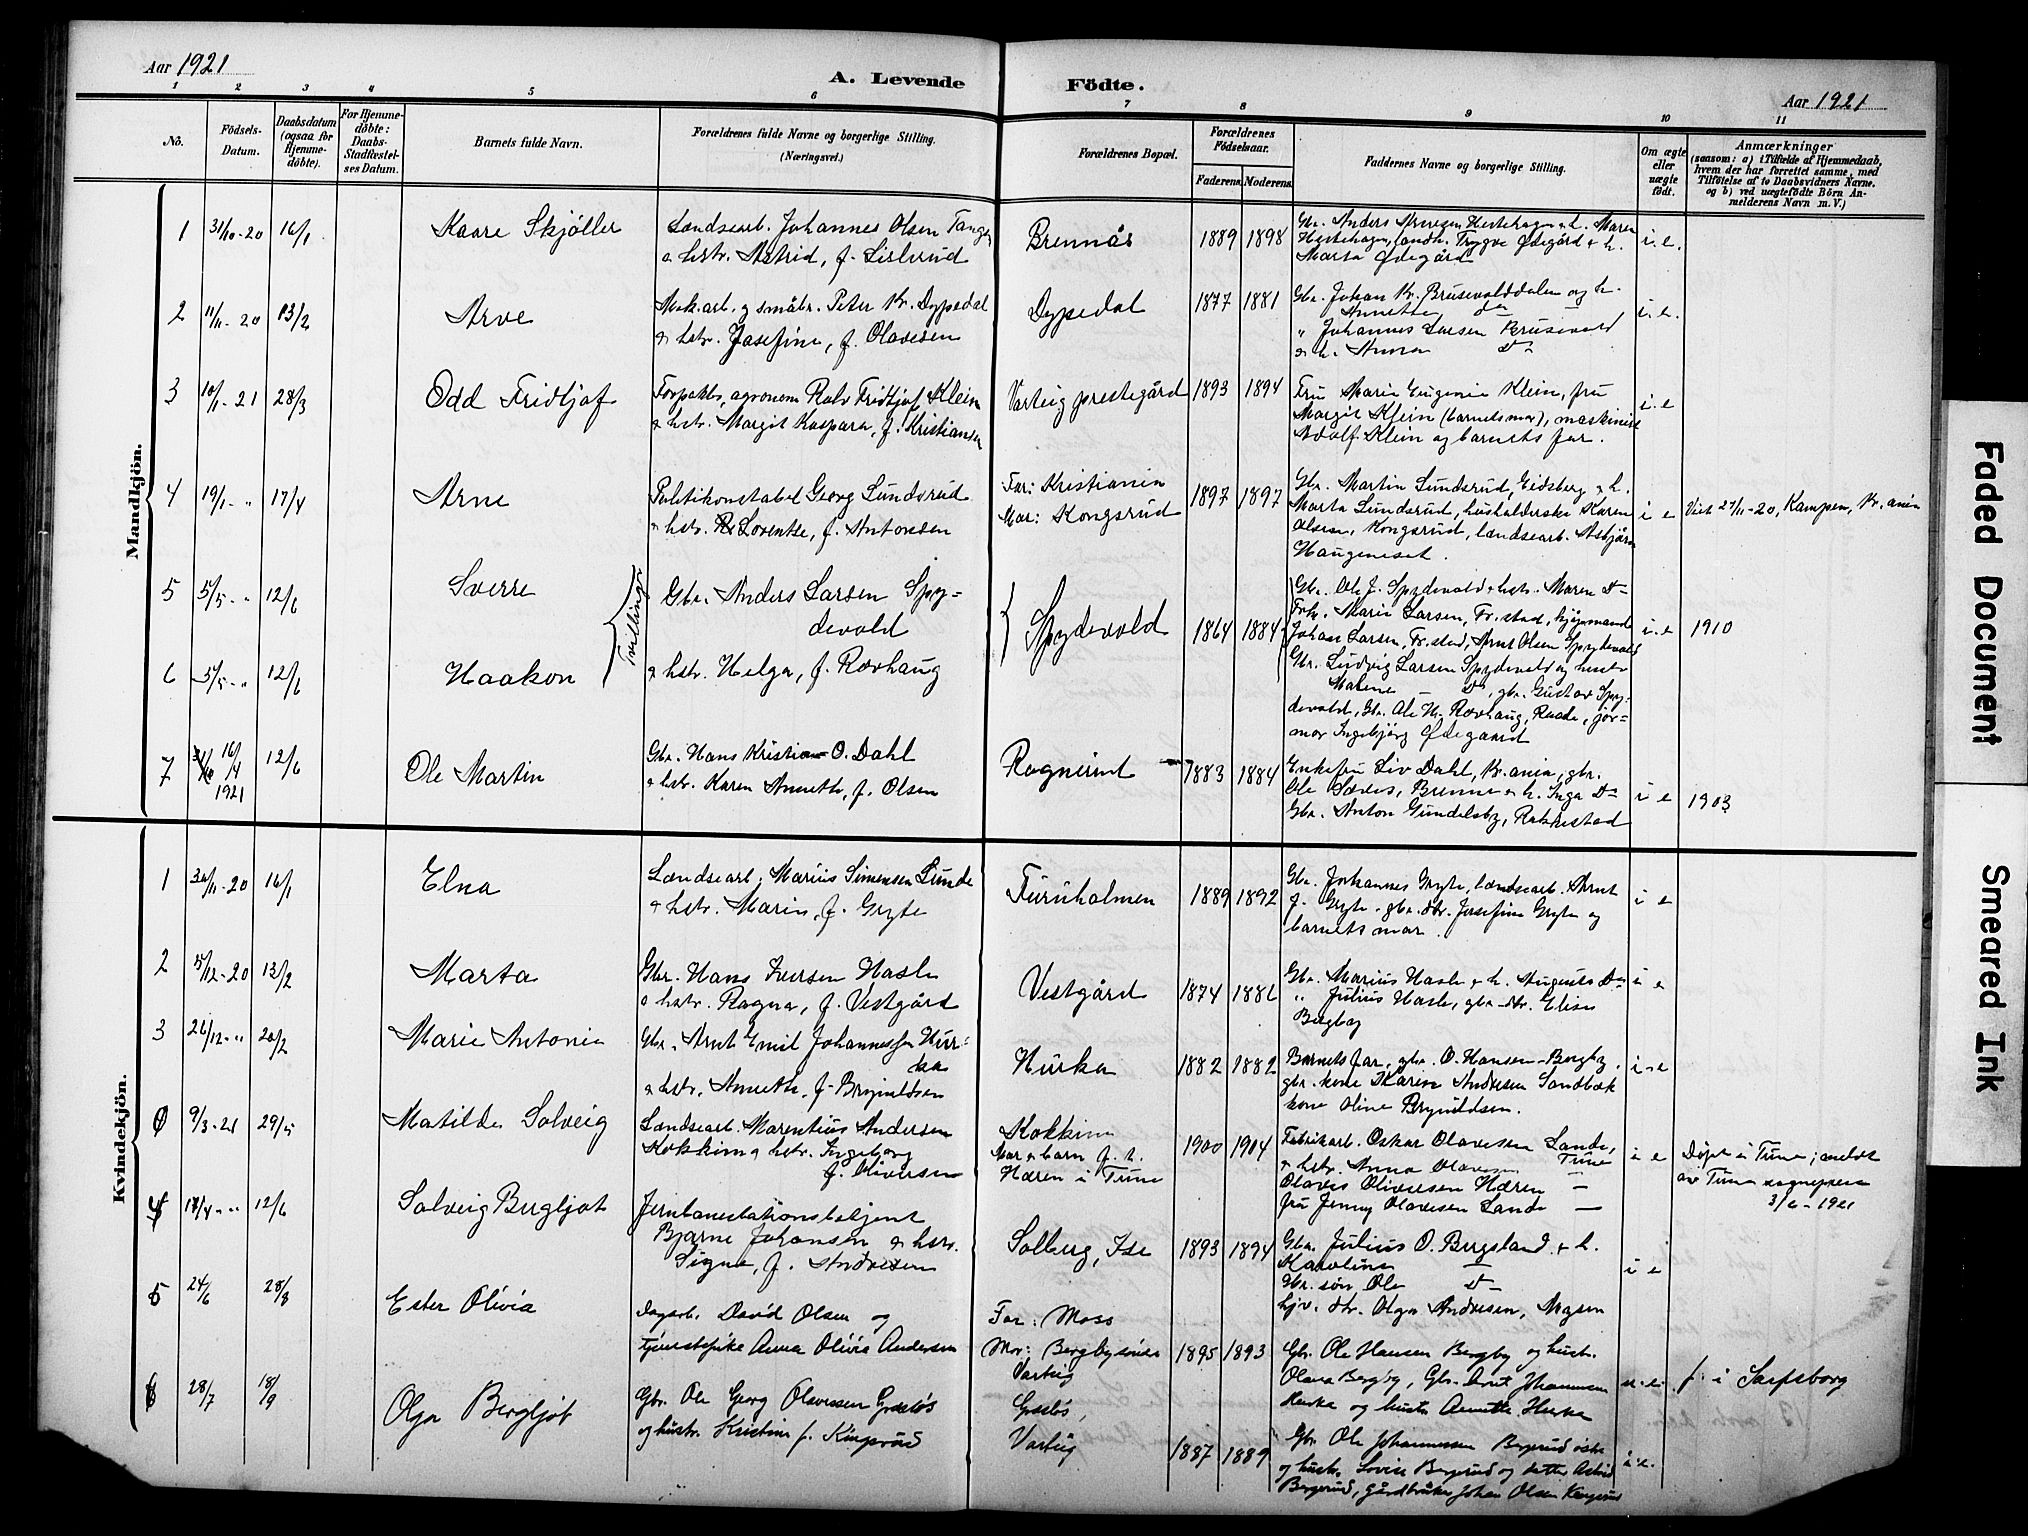 Aar 1921
A. Levende Födte.
Aar 1921
1 2 3 4 5 6 7 8 9 10 11
No.
Födsels-Datum.
Daabsdatum (ogsaa for Hjemmedöbte).
For Hjemmedöbte: Daabs-Stadfestelses Datum.
Barnets fulde Navn.
Forældrenes fulde Navne og borgerlige Stilling. (Næringsvei.)
Forældrenes Bopæl.
Forældrenes Födselsaar.
Faderens. Moderens.
Faddernes Navne og borgerlige Stilling.
Om ægte eller uægte födt.
Anmærkninger
(saasom: a) i Tilfælde af Hjemmedaab, hvem der har forrettet samme, med Tilföielse af to Daabsvidners Navne. og b) ved uægtefödte Börn Anmelderens Navn m. V.)
Mandkjön.
1 31/10-20 16/1 Kaare Skjøller
Landsearb. Johannes Olsen Tangen
o hstr. Astrid, f. Lislerud
Brennås 1889 1898
Hestehagen, landh. Trygve Ødegård + h.
Marta Ødegård
i. e.
2 11/11-20 13/2 Arve
Mek.arb. og småbr. Peter Kr. Dypedal
og hstr. Josefine, f. Olavesen
Dypedal 1877 1881
Gbr. Johan Kr. Brusevolddalen og h.
Annette do
" Johannes Larsen Brusevold
og h. Anna Do
i. e.
3 10/1-21 28/3 Odd Fridtjof
Forpakter, agronom Rolv Fridtjof Klein
o hstr. Margit Kaspara, f. Kristiansen
Varteig prestegård 1893 1894
Fru Marie Eugenia Klein, fru
Margit Klein (barnets mor), maskinist
Adolf Klein og barnets far.
i. e
4 19/1- " 17/4 Arne
Politikonstabel Georg Lundsrud
o hstr. Lorentse, f. Antonsen
Far: Kristiania
Mor: Kongsrud
1897 1897
Gbr. Martin Lundsrud, Eidsberg + h.
Marta Lundsrud, husholderske Karen
Olsen, Kongsrud, landsearb. Asbjørn
Haugeneset.
i e
Viet 27/11-20, Kampen, Kr.ania
5 5/5- " 12/6 Sverre
6 5/5- " 12/6 Haakon
Tvillinger
Gbr. Anders Larsen Spydevold
o hstr. Helga, f. Rovhaug
Spydevold 1864 1884
Gbr. Ole J. Spydevold + hstr. Maren Do
Frk. Marie Larsen, Fr.stad, kjøpmand
Johan Larsen, Fr.stad, Arne Olsen Spydevold
Gbr. Ludvig Larsen Spydevold og hustr
Malene Do, gbr. Gustav Spydevold, Gbr. Ole H. Rovhaug, Raade, jormor Ingebjørg Ødegaard
i. e 1910
7 16/4 1921 12/6 Ole Martin
Gbr. Hans Kristian O. Dahl
o hstr. Karen Annette, f. Olsen
Ragnerud 1883 1884
Enkefru Liv Dahl, Kr.ania, gbr.
Brenne + h. Inga Do
Gbr. Anton Gundelsby, Rakkestad
i e 1903
Kvindekjön.
1 30/11-20 16/1 Elna
Landsearb. Marius Simensen Lunde
o hstr. Marie, f. Gryte
Furuholmen 1889 1892
Gbr. Johannes Gryte, landsearb. Arnt
J. Gryte, gbr.dtr. Josefine Gryte og
barnets mor.
i e
2 5/12-20 13/2 Marta
Gbr. Hans Iversen Hasle
o hstr. Ragna, f. Vestgård
Vestgård 1874 1881
Gbr. Marius Hasle + h. Augusta Do
" Julius Hasle, gbr.-dtr. Elise
Bergby
i e
3 26/12- " 20/2 Marie Antonie
Gbr. Arnt Emil Johannessen Hurka
o hstr. Annette, f. Brynildsen
Hurka 1882 1882
Barnets far, gbr. O. Hansen-Bergby,
gbr. kone Karen Andresen Sandbæk
kone Oline Brynildsen.
i e
0 9/3-21 29/5 Matilde Solveig
Landsearb. Marentius Andersen
Kokkim o hstr. Ingeborg
f. Oliversen
Kokkim
Mor o barn f. t.
Næren i Tune
1900 1904
Fabrikarb. Oskar Olavesen Lande,
o hstr. Anna Olavesen Tune
Olavis Oliversen Næren —
fru Jenny Olavesen Lande —
i e
Døpt i Tune; meldt
av Tune sogneprest
3/6-1921
4 17/4- " 12/6 Solveig Bergljot
Jernbanestationsbetjent
Bjarne Johansen og hstr.
Signe, f. Andresen
Solberg, Ise 1893 1894
Gbr. Julius O. Bergsland + h.
Karoline —
Gbr. søn Ole Do
hjv. dtr. Olga Andresen, Mysen
i e
5 24/6 28/8 Ester Olivia
Dagarb. David Olsen og
tjenestepike Anna Olivia Andersen
Far: Moss
Mor: Bergbysøndre
Varteig
1895 1893
Gbr. Ole Hansen Bergby og hustr.
Olava Bergby, Gbr. Arnt Johannessen
Hurka og hustr. Annette Hurka
u. e.
f. i Sarpsborg
6 28/7 18/9 Olga Bergljot
Gbr. Ole Georg Olavesen Græslös
og hustr. Kristine f. Kingsrud
Græslös,
Varteig
1887 1889
Gbr. Ole Johannessen Bergerud østre
og hustr. Lovise Bergerud og datter Astrid
Bergerud, gårdbruker Johan Olsen Kingsrud
i. e.
Faded Document
Smeared Ink